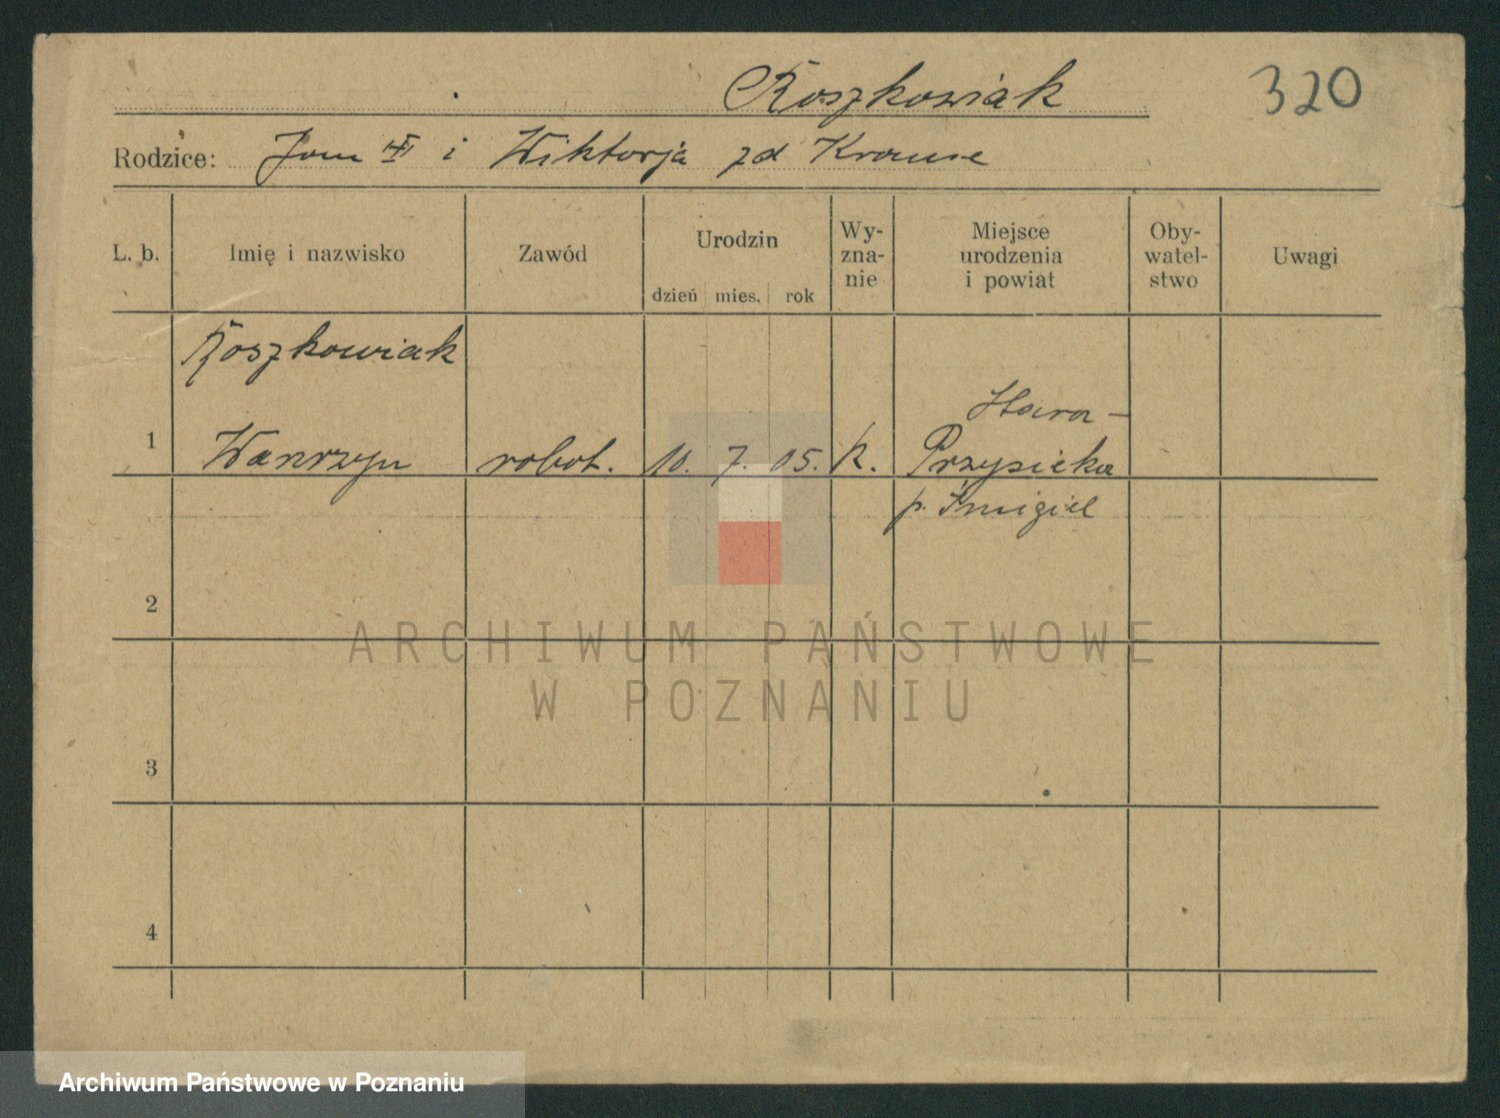 Roszkowiak
320
Rodzice: Jan i Wiktorja zd Krause
L. b.
Imię i nazwisko
Zawód
Urodzin
dzień mies. rok
Wy-
zna-
nie
Miejsce
urodzenia
i powiat
Oby-
watel-
stwo
Uwagi
Roszkowiak
1 Wawrzyn robot. 10. 7. 05. k. Stara-
Przysieka
p. Śmigiel
2
3
4
ARCHIWUM PAŃSTWOWE
W POZNANIU
Archiwum Państwowe w Poznaniu